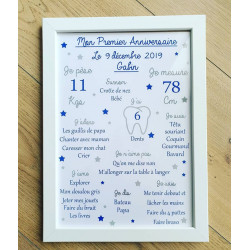 Mon Premier Anniversaire
Le 9 décembre 2019
Gabin
Je pèse
11
Kgs
Surnom
Croûte de nez
Bébé
Je mesure
78
Cm
J'ai
6
Dents
J'adore
Les guilis de papa
Chanter avec maman
Caresser mon chat
Crier
Je suis
Têtu
souriant
Coquin
Gourmand
Bavard
Je n'aime pas
Qu'on me dise non
M'allonger sur la table à langer
J'aime
Explorer
Mon doudou gris
Jeter mes jouets
Faire du bruit
Les livres
Je dis
Bateau
Papa
Je sais
Me tenir debout
lâcher les mains
Faire du 4 pattes
Faire bravo